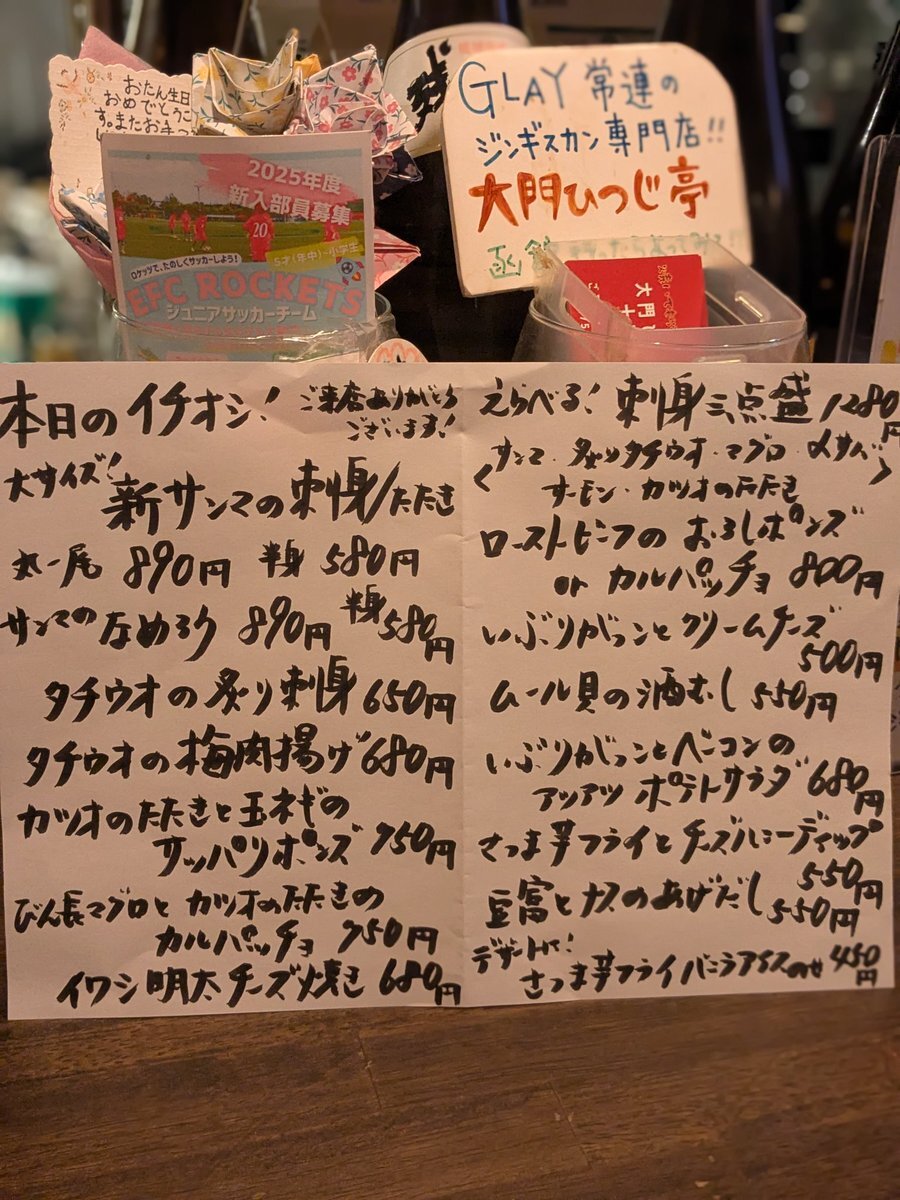 おたん生日
おめでとうご
す。またお手つ
2025年度
新入部員募集
20
5才(年中)~小学生
ロケッツで、たのしくサッカーしよう!
EFC ROCKETS
ジュニアサッカーチーム
GLAY 常連の
ジンギスカン専門店!!
大門ひつじ亭
大門
本日のイチオシ!
ご来店ありがとう
ございます!
大サイズ!
新サンマの刺身/たたき
丸一尾 890円 半身 580円
サンマのなめろう 890円 半身 580円
タチウオの炙り刺身 650円
タチウオの梅肉揚げ 680円
カツオのたたきと玉ネギの
サッパリポンズ 750円
びん長マグロとカツオのたたきの
カルパッチョ 750円
イワシ明太チーズ焼き 680円
えらべる! 刺身三点盛 1280円
<サンマ・炙りタチウオ・マグロ・〆サバ
サーモン・カツオのたたき>
ローストビーフのおろしポンズ
or カルパッチョ 800円
いぶりがっことクリームチーズ
500円
ムール貝の酒むし 550円
いぶりがっことベーコンの
アツアツポテトサラダ 680円
さつま芋フライとチーズハニーディップ
550円
豆富とナスのあげだし 550円
デザートにて!
さつま芋フライバニラアイスのせ 450円